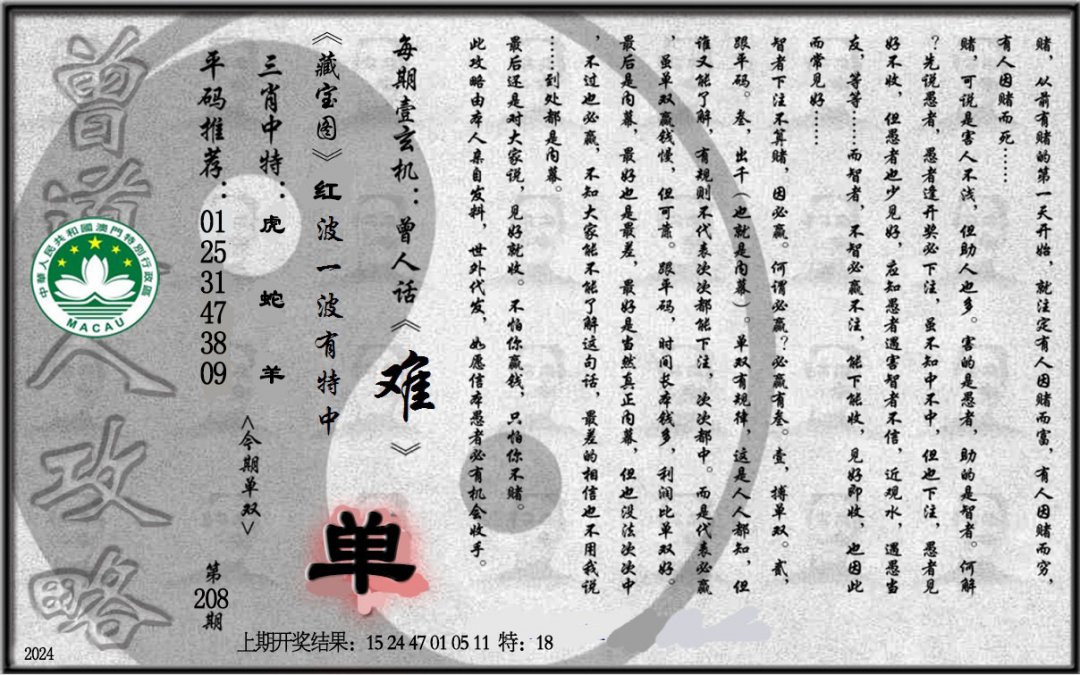 赌，从前有赌的第一天开始，就注定有人因赌而富，有人因赌而穷，
有人因赌而死……
赌，可说是害人不浅，但助人也多。害的是愚者，助的是智者。何解
？先说愚者，愚者逢开奖必下注，虽不知中不中，但也下注，愚者见
好不收，但愚者也少见好，应知愚者遇害智者不信，近观水，遇愚当
友，等等……而智者，不智必赢不注，能下能收，见好即收，也因此
而常见好……
智者下注不算赌，因必赢。何谓必赢？必赢有叁。壹，搏单双。贰，
跟平码。叁，出千（也就是内幕）。单双有规律，这是人人都知，但
谁又能了解，有规则不代表次次都能下注，次次都中。而是代表必赢
，虽单双赢钱慢，但可靠。跟平码，时间长本钱多，利润比单双好。
最后是内幕，最好也是最差，最好是当然真正内幕，但也没法次次中
，不过也必赢，不知大家能不能了解这句话，最差的相信也不用我说
……到处都是内幕。
最后还是对大家说，见好就收。不怕你赢钱，只怕你不赌。
此攻略由本人亲自发料，世外代发，如愿信本愚者必有机会收手。
每期壹玄机：曾人话《难》
《藏宝图》红波一波有特中
单
三肖中特：虎 蛇 羊
<今期单双>
平码推荐：01 25 31 47 38 09
第208期
曾道人攻略
中華人民共和國澳門特別行政區
MACAU
上期开奖结果：15 24 47 01 05 11 特：18
2024